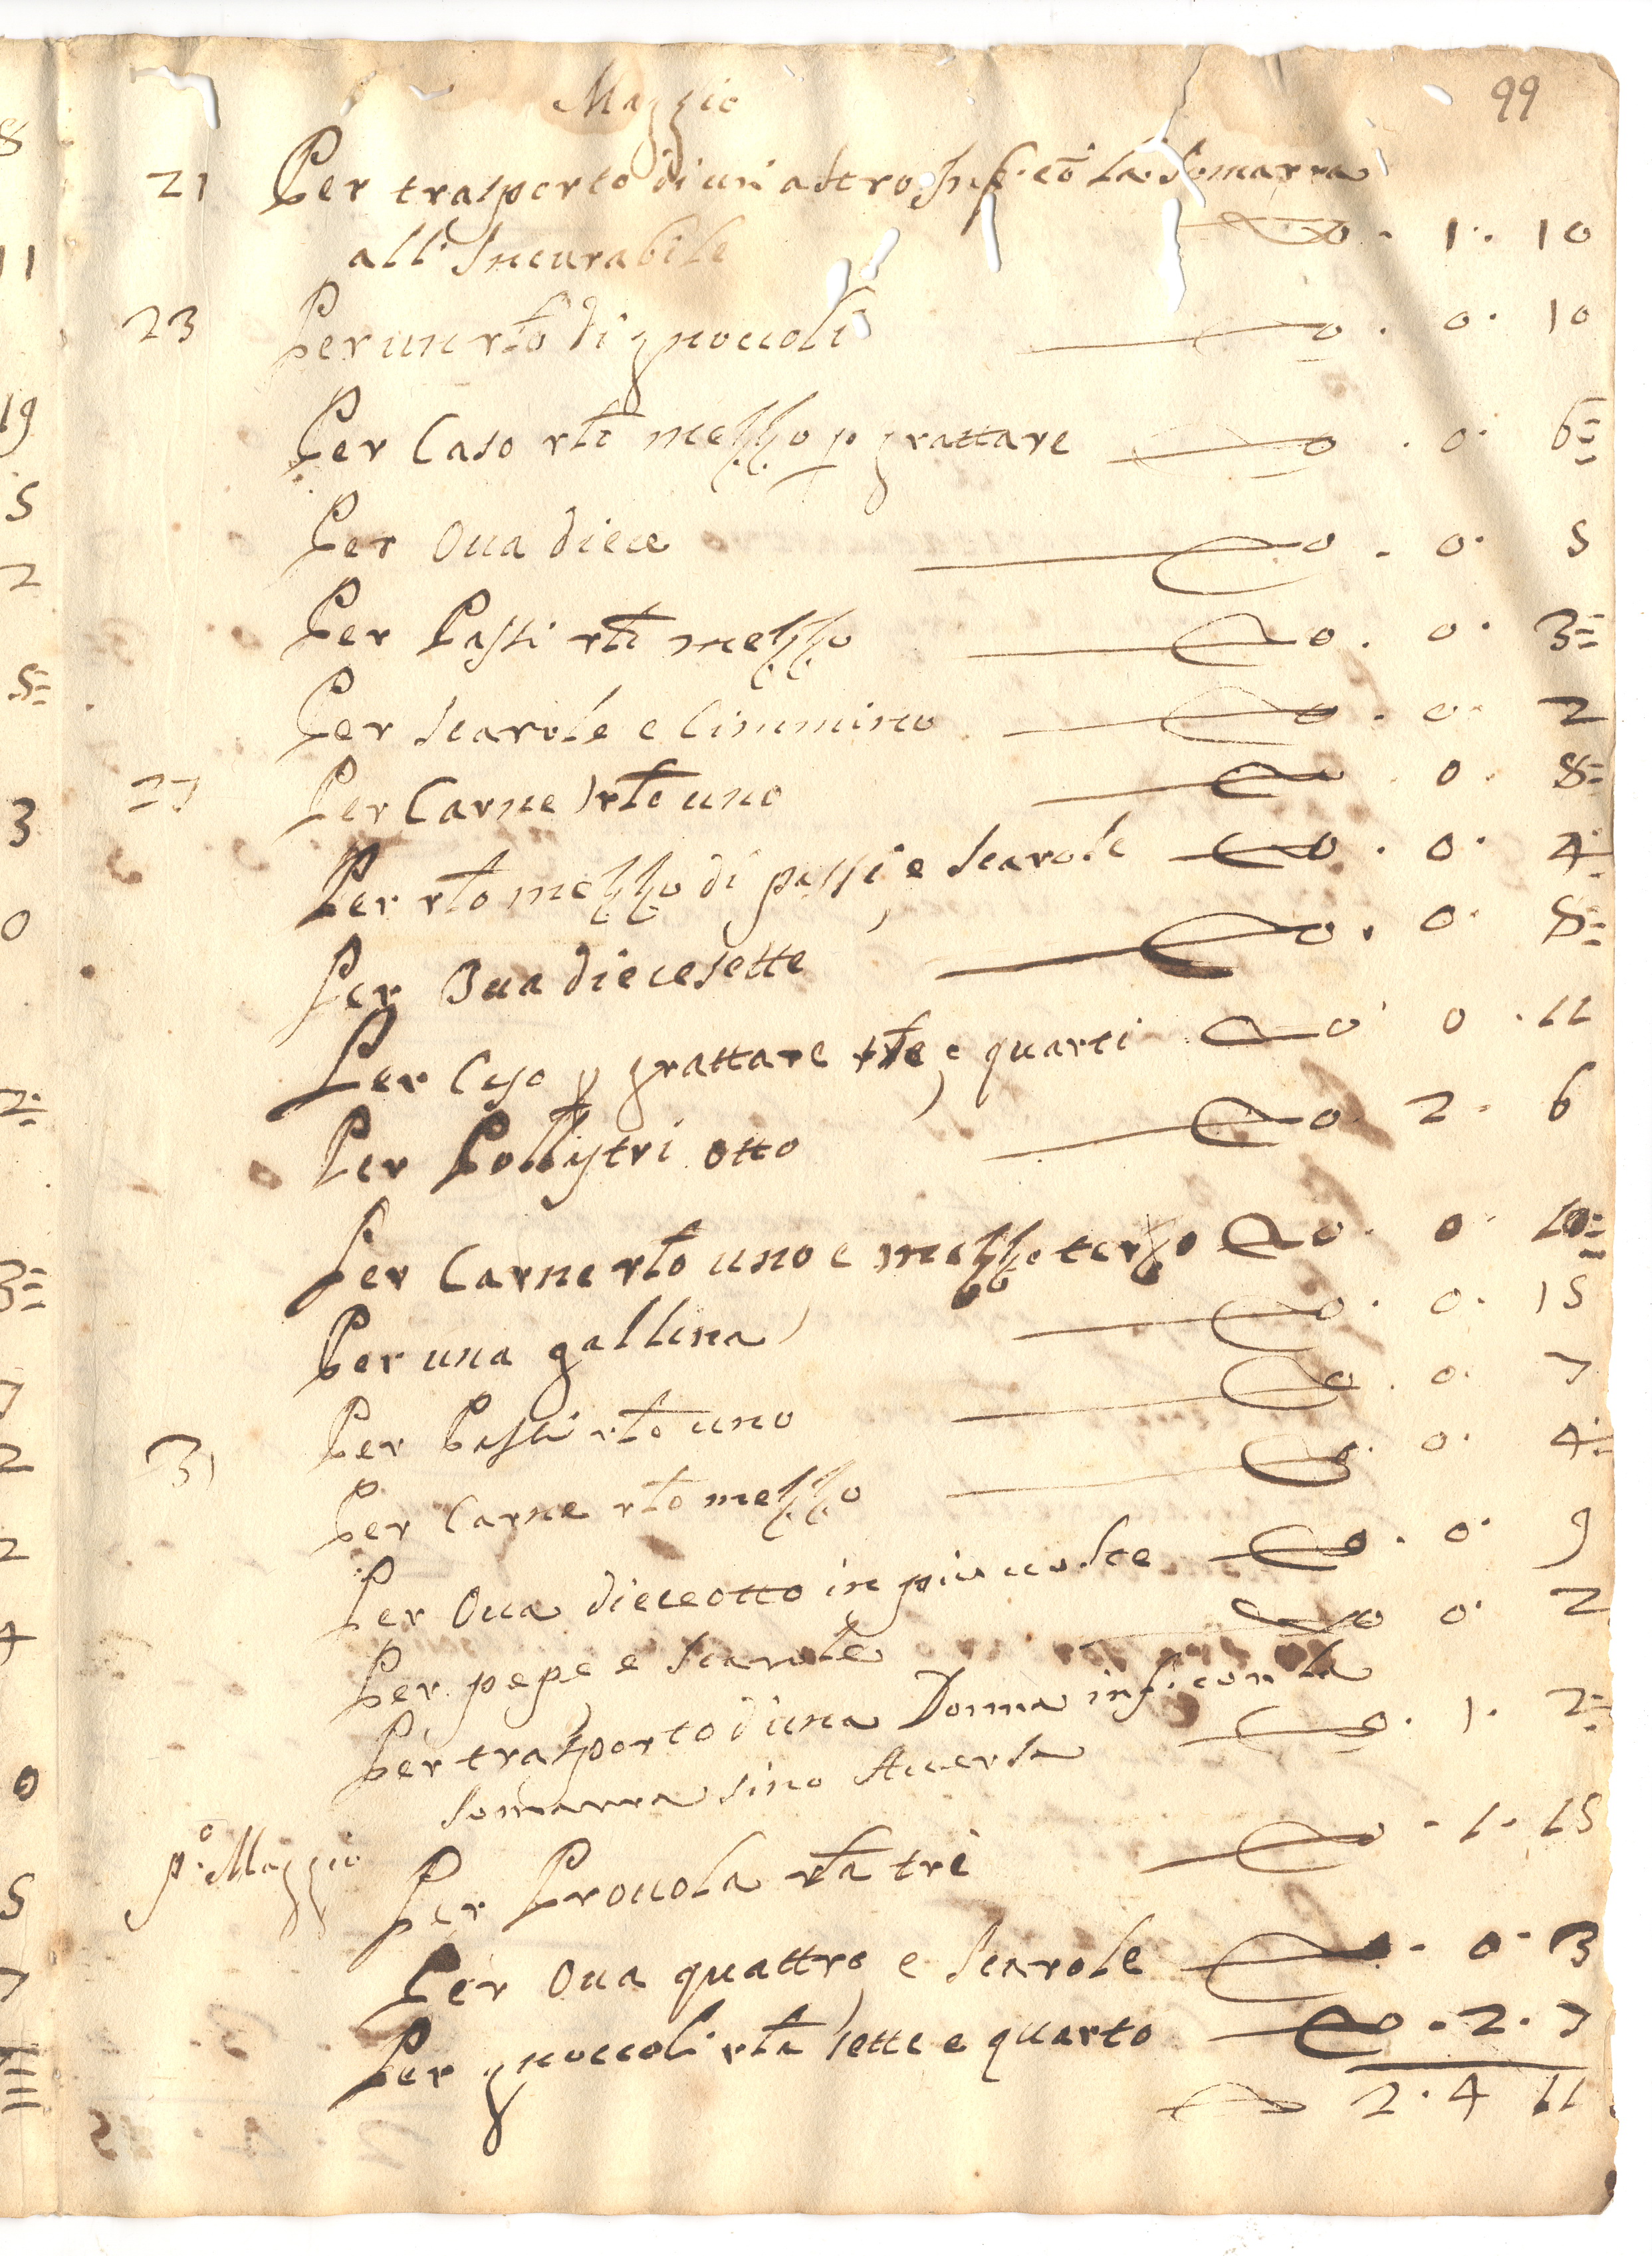 99
Maggio
21 Per trasporto di un' altro Inf. cō la Somarra
all' Incurabile 0. 1. 10
23 Per un rłō di gnoccoli 0. 0. 10
Per Caso rłō mezzo p grattare 0. 0. 6=
Per Oua diece 0. 0. 5
Per Passi rłō mezzo 0. 0. 3=
Per Scarole e Cimmino 0. 0. 2
27 Per Carne rłō uno 0. 0. 8=
Per rłō mezzo di passi, e Scarole 0. 0. 4=
Per Oua diecesette 0. 0. 8=
Per Caso p grattare e quarti 0. 0. 11
Per Pollastri otto 0. 2. 6
Per Carne rłō uno e mezzo terzo 0. 0. 10=
Per una gallina 0. 0. 15
Per Passi rłō uno 0. 0. 7
31 Per Carne rłō mezzo 0. 0. 4=
Per Oua dieceotto in piu uolte 0. 0. 9
Per pepe e Scarole 0. 0. 2
Per trasporto d'una Donna inf. con la
Somarra sino Auersa 0. 1. 2=
p.º Maggio Per Prouola rłā tre 0. 1. 15
Per Oua quattro, e Scarole 0. 0. 3
Per gnoccoli rłā sette e quarto 0. 2. 7
2. 4 11